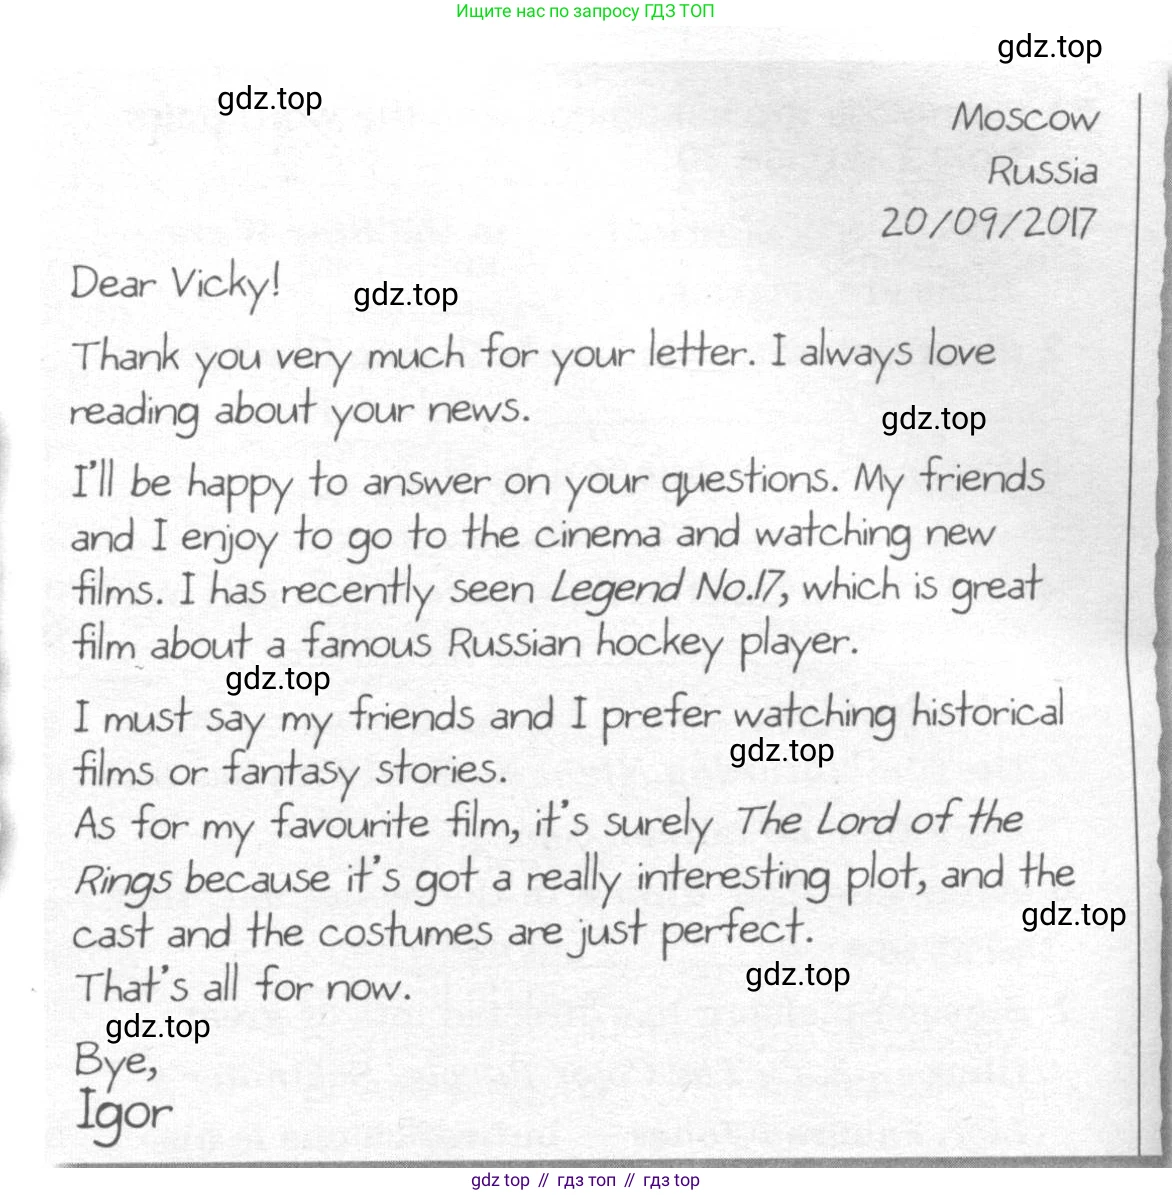 Ищите нас по запросу ГДЗ ТОП
gdz.top
gdz.top
Moscow
Russia
20/09/2017
Dear Vicky!
gdz.top
Thank you very much for your letter. I always love
reading about your news.
gdz.top
I'll be happy to answer on your questions. My friends
and I enjoy to go to the cinema and watching new
films. I has recently seen Legend No.17, which is great
film about a famous Russian hockey player.
gdz.top
I must say my friends and I prefer watching historical
gdz.top
films or fantasy stories.
As for my favourite film, it's surely The Lord of the
Rings because it's got a really interesting plot, and the
gdz.top
cast and the costumes are just perfect.
gdz.top
That's all for now.
gdz.top
Bye,
Igor
gdz.top // гдз топ // гдз top